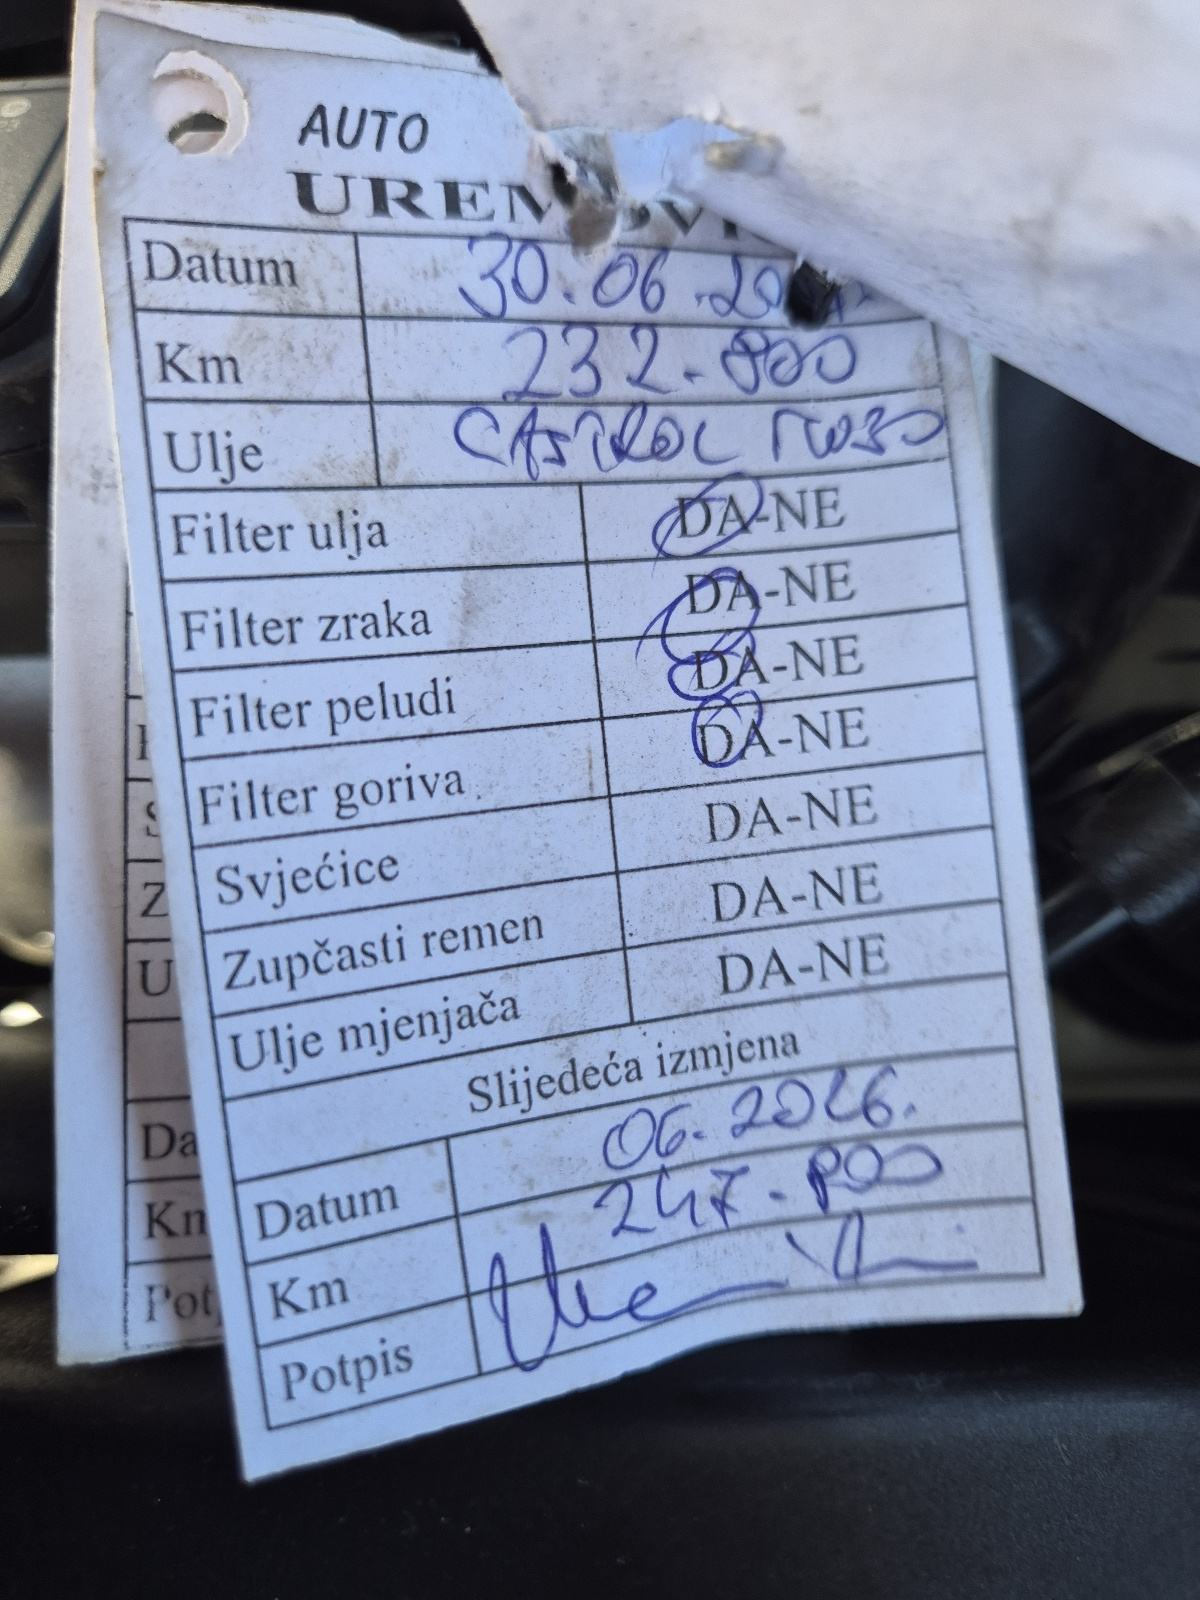 AUTO
Datum 30.06.
Km 232.800
Ulje CASTROL
Filter ulja DA-NE
Filter zraka DA-NE
Filter peludi DA-NE
Filter goriva DA-NE
Svjećice DA-NE
Zupčasti remen DA-NE
Ulje mjenjača DA-NE
Slijedeća izmjena
Datum 06.2026.
Km 247.800
Potpis
Z
U
Da
Km
Pot